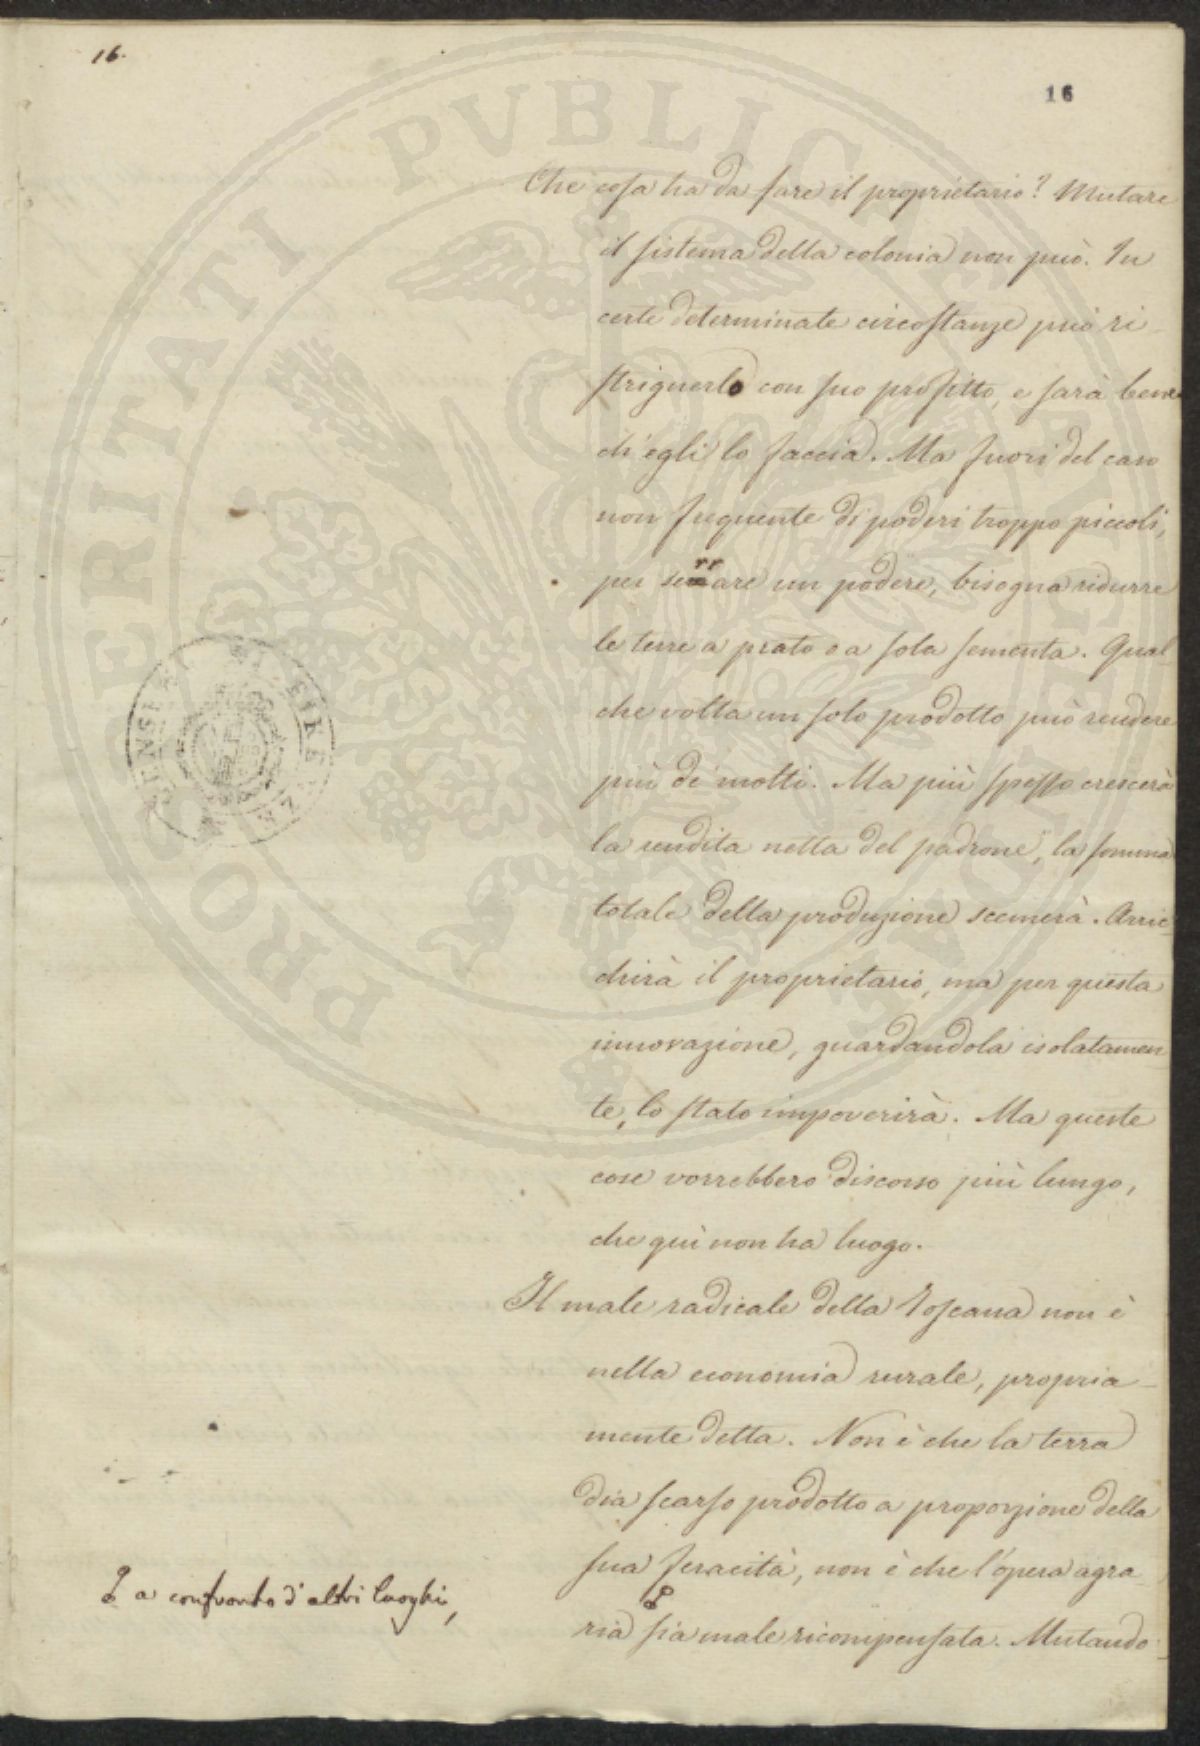 16.
16
Che cosa ha da fare il proprietario? Mutare
il sistema della colonia non può. In
certe determinate circostanze può ri-
strignerlo con suo profitto, e sarà bene
ch'egli lo faccia. Ma fuori del caso
non frequente di poderi troppo piccoli,
per serrare un podere, bisogna ridurre
le terre a prato o a sola sementa. Qual-
che volta un solo prodotto può rendere
più de' molti. Ma più spesso crescerà
la rendita netta del padrone, la somma
totale della produzione scemerà. Arric-
chirà il proprietario, ma per questa
innovazione, guardandola isolatamen-
te, lo stato impoverirà. Ma queste
cose vorrebbero discorso più lungo,
che quì non ha luogo.
Il male radicale della Toscana non è
nella economia rurale, propria-
mente detta. Non è che la terra
dia scarso prodotto a proporzione della
sua feracità, non è che l'opera agra-
ria sia male ricompensata. Mutando
a confronto d'altri luoghi,
PROSPERITATI PVBLICAE